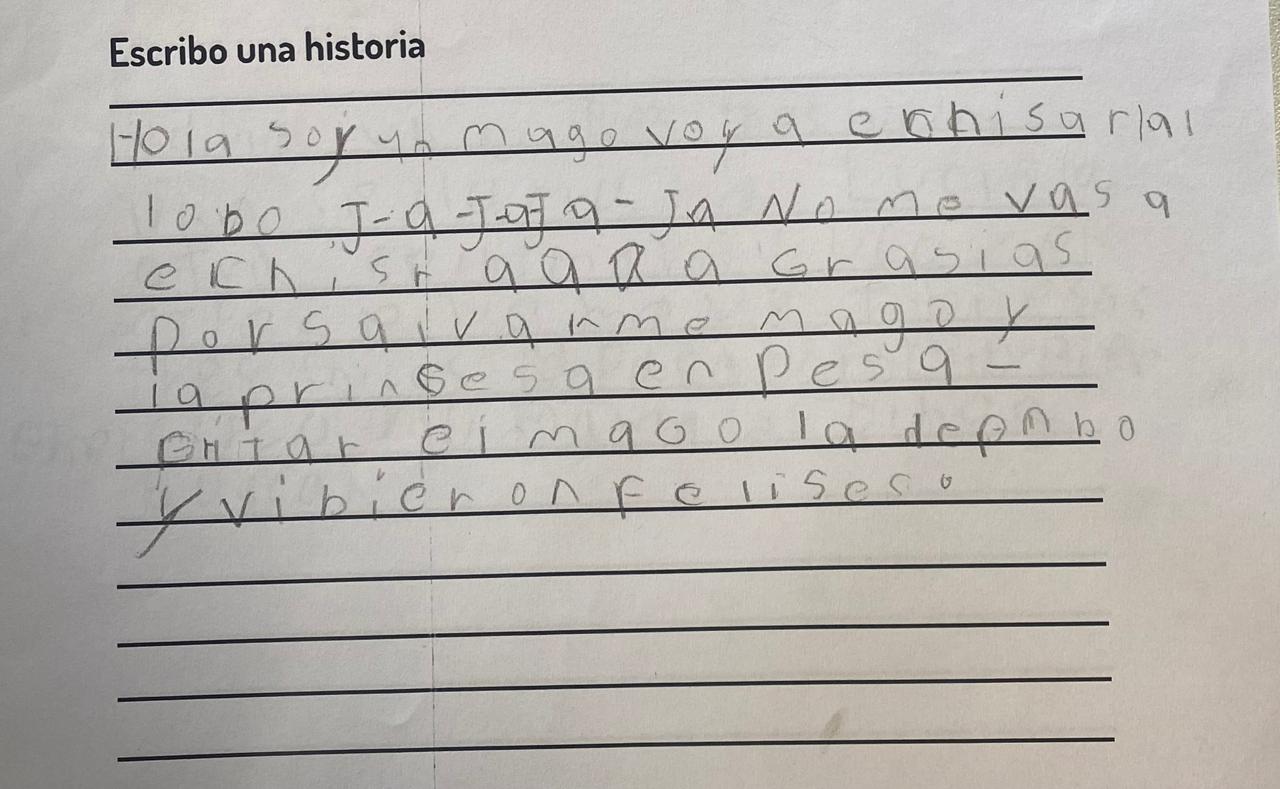 Escribo una historia
Hola soy un mago voy a echisar al
lobo J-a-Ja-Ja-Ja No me vas a
echisr aaaa Grasias
por salvarme mago y
la prinsesa enpesa-
entar el mago la
y vibieron felises.